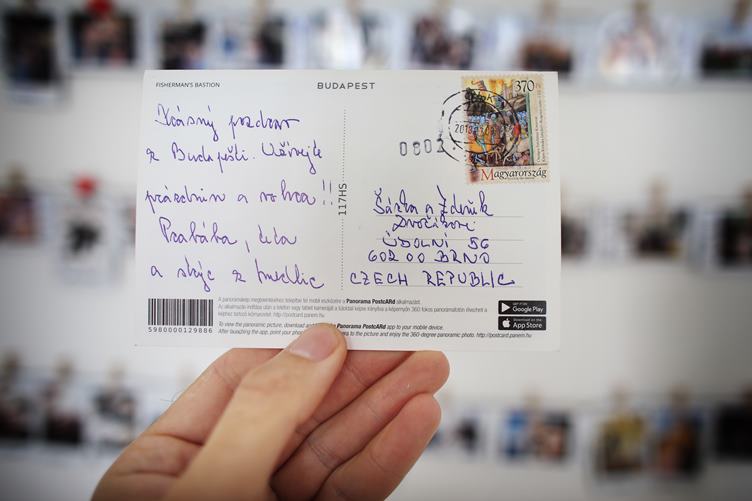 FISHERMAN'S BASTION
BUDAPEST
370
Magyarország
0802
Krásný pozdrav
z Budapešti. Užívejte
prázdnin a volna!!
Prabába, teta
a strýc z
117HS
Šárka a Zdeněk
Dvořákovi
ÚDOLNÍ 56
602 00 BRNO
CZECH REPUBLIC
5980000129886
A panorámakép megtekintéséhez telepítse fel mobil eszközére a Panorama PostcARd alkalmazást.
Az alkalmazás indítása után a telefon vagy tablet kameráját a túloldali képre irányítva a képernyőn 360 fokos panorámafotón élvezheti a
képhez tartozó körkilátást. http://postcard.panem.hu
To view the panoramic picture, download and Panorama PostcARd app to your mobile device.
After launching the app, point your phone to the picture and enjoy the 360-degree panoramic photo. http://postcard.panem.hu
GET IT ON
Google Play
Download on the
App Store